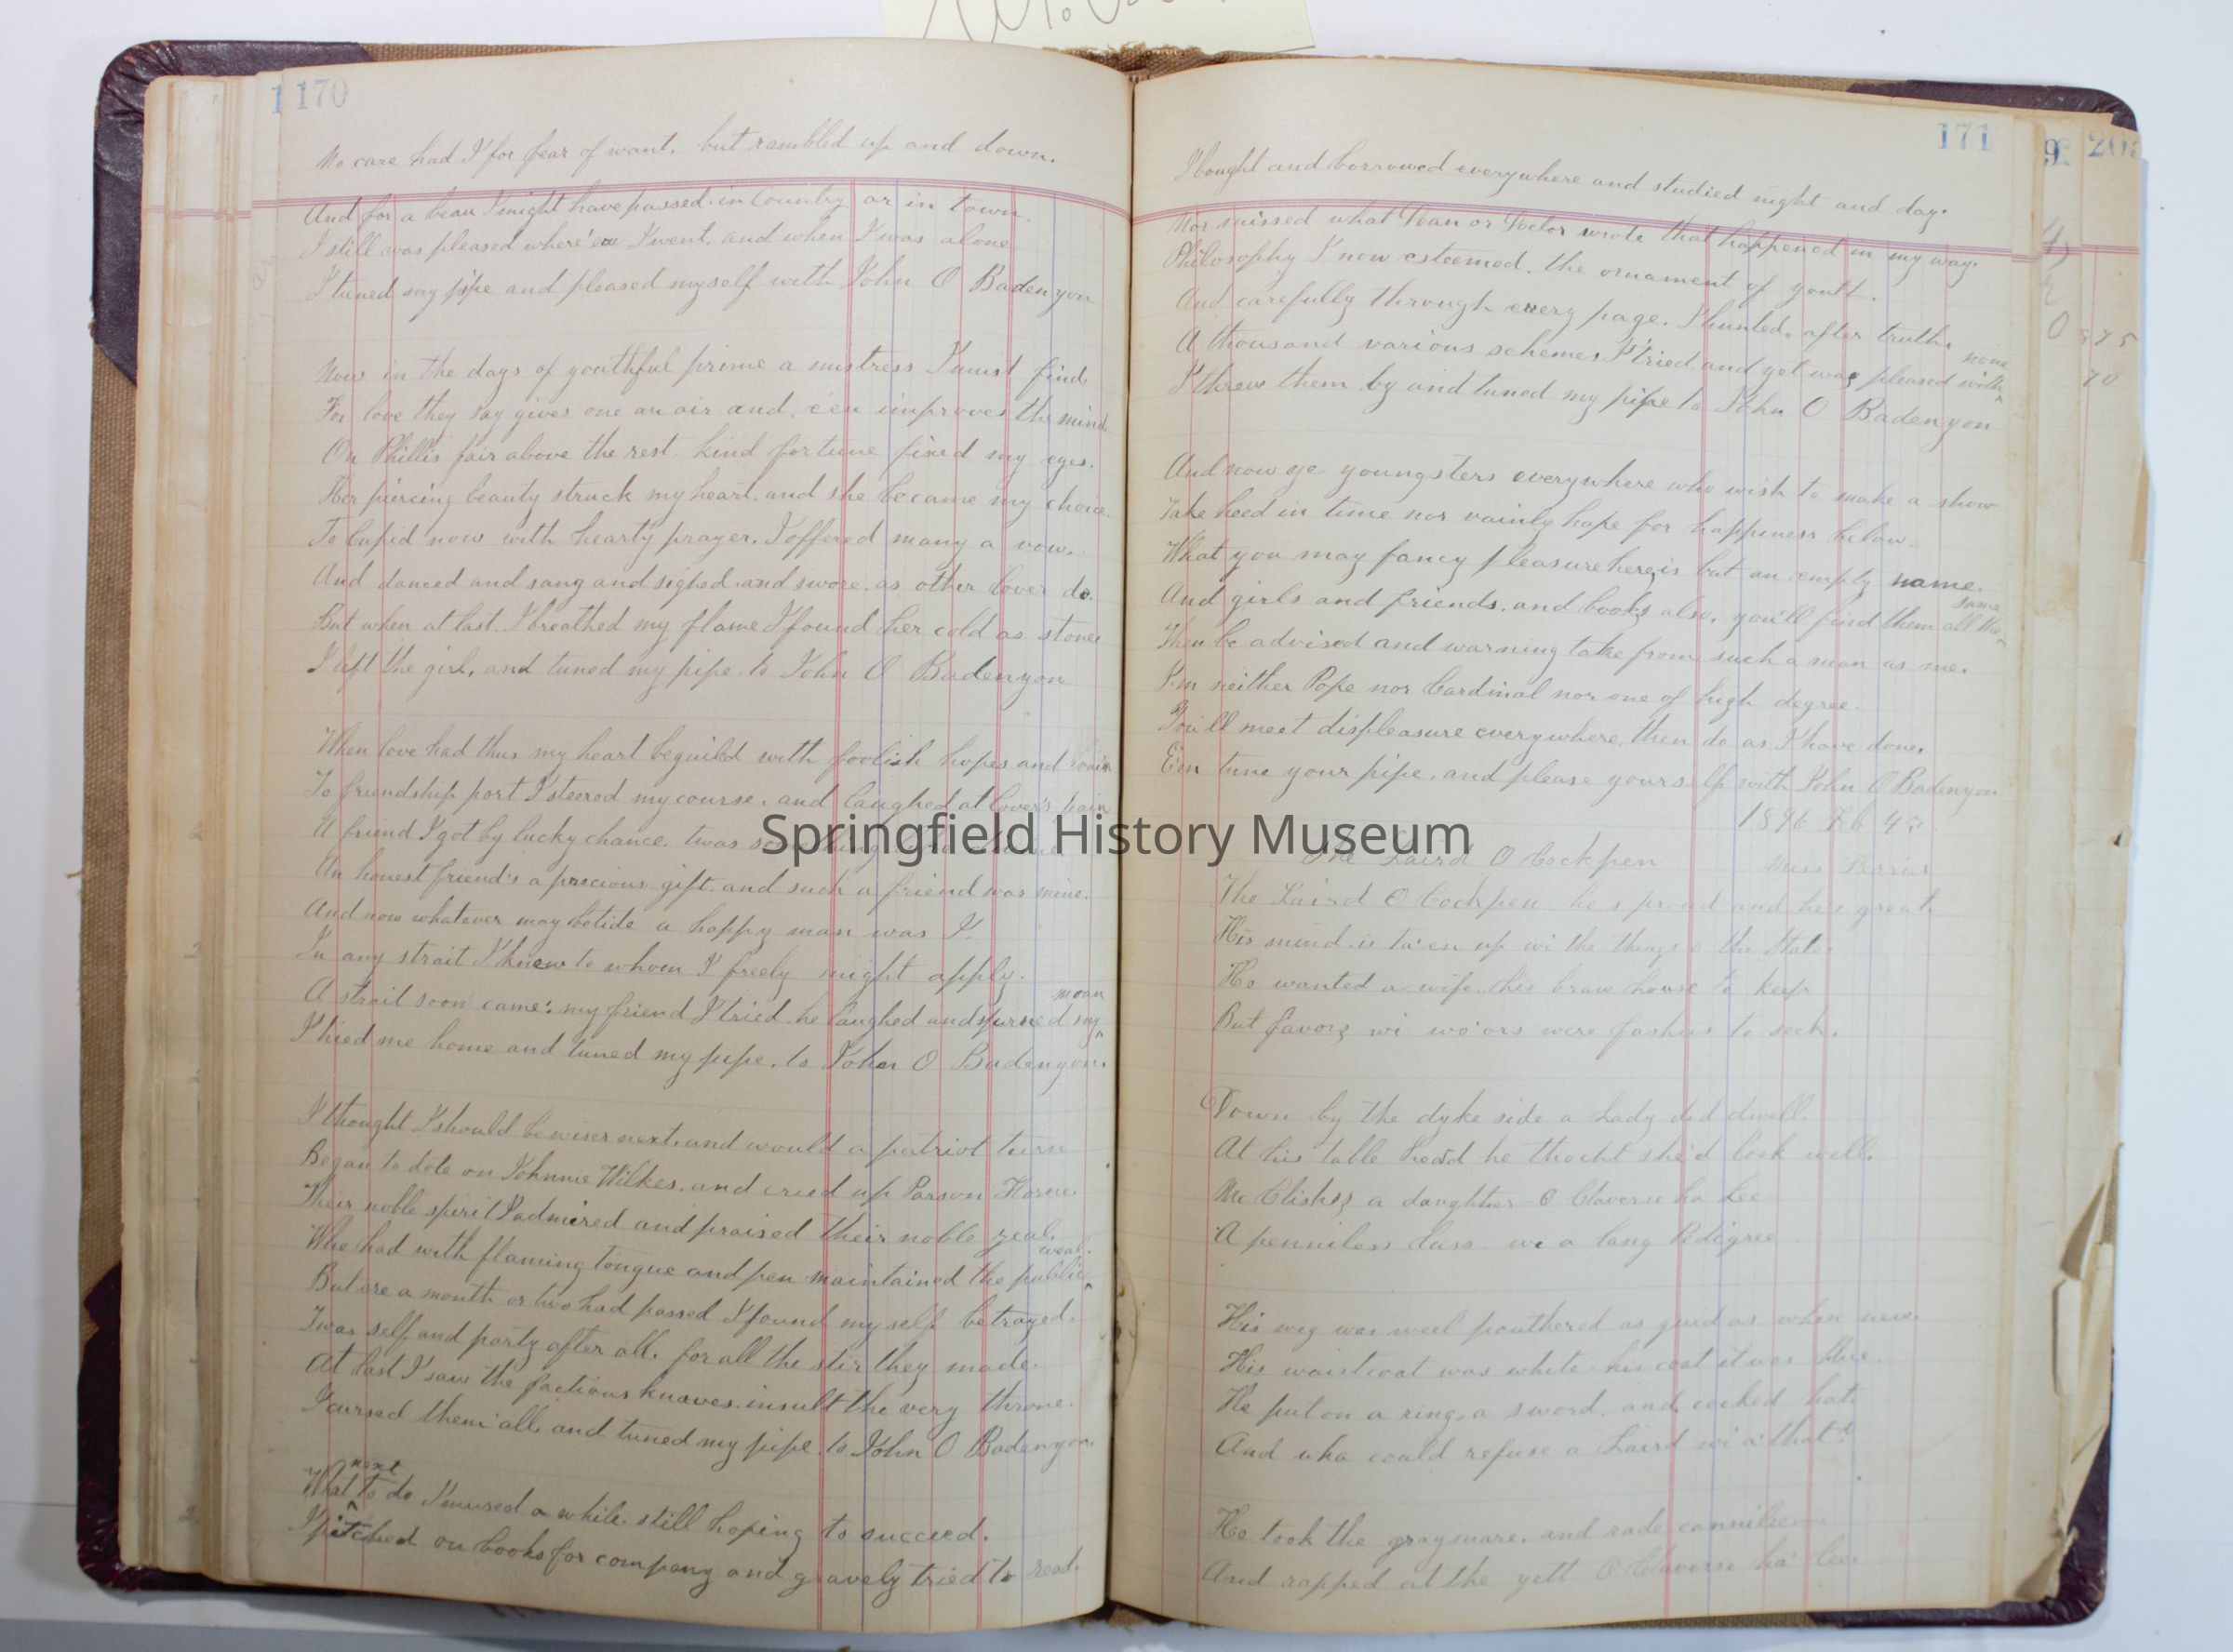 170
No care had I for fear of want. but rambled up and down.
And for a beau I might have passed in Country or in town.
I still was pleased where'er I went. and when I was alone
I tuned my pipe and pleased myself with John O Badenyon
Now in the days of youthful prime a mistress I must find
For love they say gives one an air and. e'en improves the mind
On Phillis fair above the rest. kind fortune fixed my eyes.
Her piercing beauty struck my heart. and she became my choice.
To Cupid now with hearty prayer. I offered many a vow.
And danced and sang and sighed and swore. as other lover do.
But when at last. I breathed my flame I found her cold as stone
I left the girl, and tuned my pipe to John O Badenyon
When love had thus my heart beguiled with foolish hopes and vain
To friendship port I steered my course. and laughed at lover's pain
A friend I got by lucky chance. twas something
An honest friend's a precious gift. and such a friend was mine.
And now whatever may betide a happy man was I.
In any strait I knew to whom I freely might apply.
A strait soon came: my friend I tried he laughed and spurned my moan
I hied me home and tuned my pipe. to John O Badenyon.
I thought I should be wiser next. and would a patriot turn
Began to dote on Johnnie Wilkes. and cried up Parson Horne.
Their noble spirit I admired and praised their noble zeal.
Who had with flaming tongue and pen maintained the public weal.
But ere a month or two had passed I found my self betrayed.
Twas self and party after all. for all the stir they made.
At last I saw the factious knaves. insult the very throne.
I cursed them all. and tuned my pipe to John O Badenyon.
What next to do I mused a while. still hoping to succeed.
I pitched on books for company and gravely tried to read.
171
I bought and borrowed everywhere and studied night and day.
Nor missed what Dean or Doctor wrote that happened in my way.
Philosophy I now esteemed. the ornament of youth.
And carefully through every page. I hunted. after truth.
A thousand various schemes I tried. and yet was pleased with none
I threw them by and tuned my pipe to John O Badenyon
And now ye youngsters everywhere who wish to make a show
Take heed in time nor vainly hope for happiness below.
What you may fancy pleasure here is but an empty name.
And girls and friends. and books also. you'll find them all the same
Then be advised and warning take from such a man as me.
I'm neither Pope nor Cardinal nor one of high degree.
You'll meet displeasure everywhere. then do as I have done.
E'en tune your pipe. and please yourself with John O Badenyon
1896 Feb 4
The Laird O Cockpen
The Laird O Cockpen he's proud and he's great.
His mind is ta'en up wi the things o the State.
He wanted a wife his braw house to keep
But favors wi wo'ors were fashus to seek.
Down by the dyke side a Lady did dwell.
At his table head he thocht she'd look well.
Mc Clishs a daughter O Claverse ha Lee
A penniless lass. wi a lang Pedigree
His wig was weel pouthered as guid as when new.
His waistcoat was white. his coat it was blue.
He put on a ring. a sword. and. cocked hat.
And wha could refuse a Laird wi a' that
He took the gray mare. and rade cannilie
And rapped at the yett O Claverse ha' lee.
Springfield History Museum